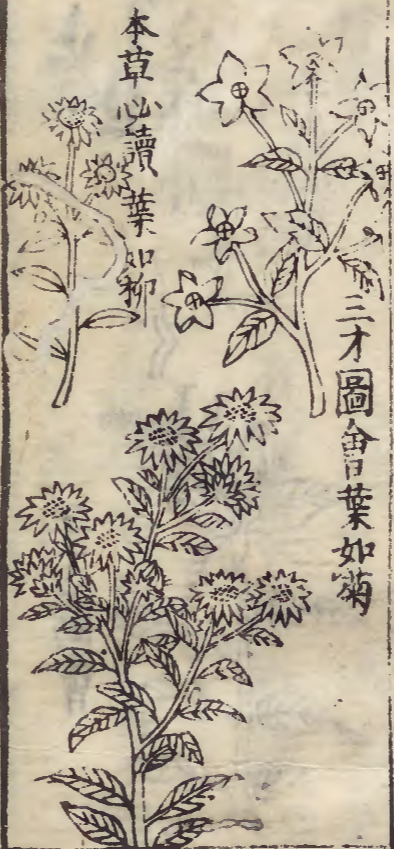 三才圖會葉如菊
本草必讀葉如柳